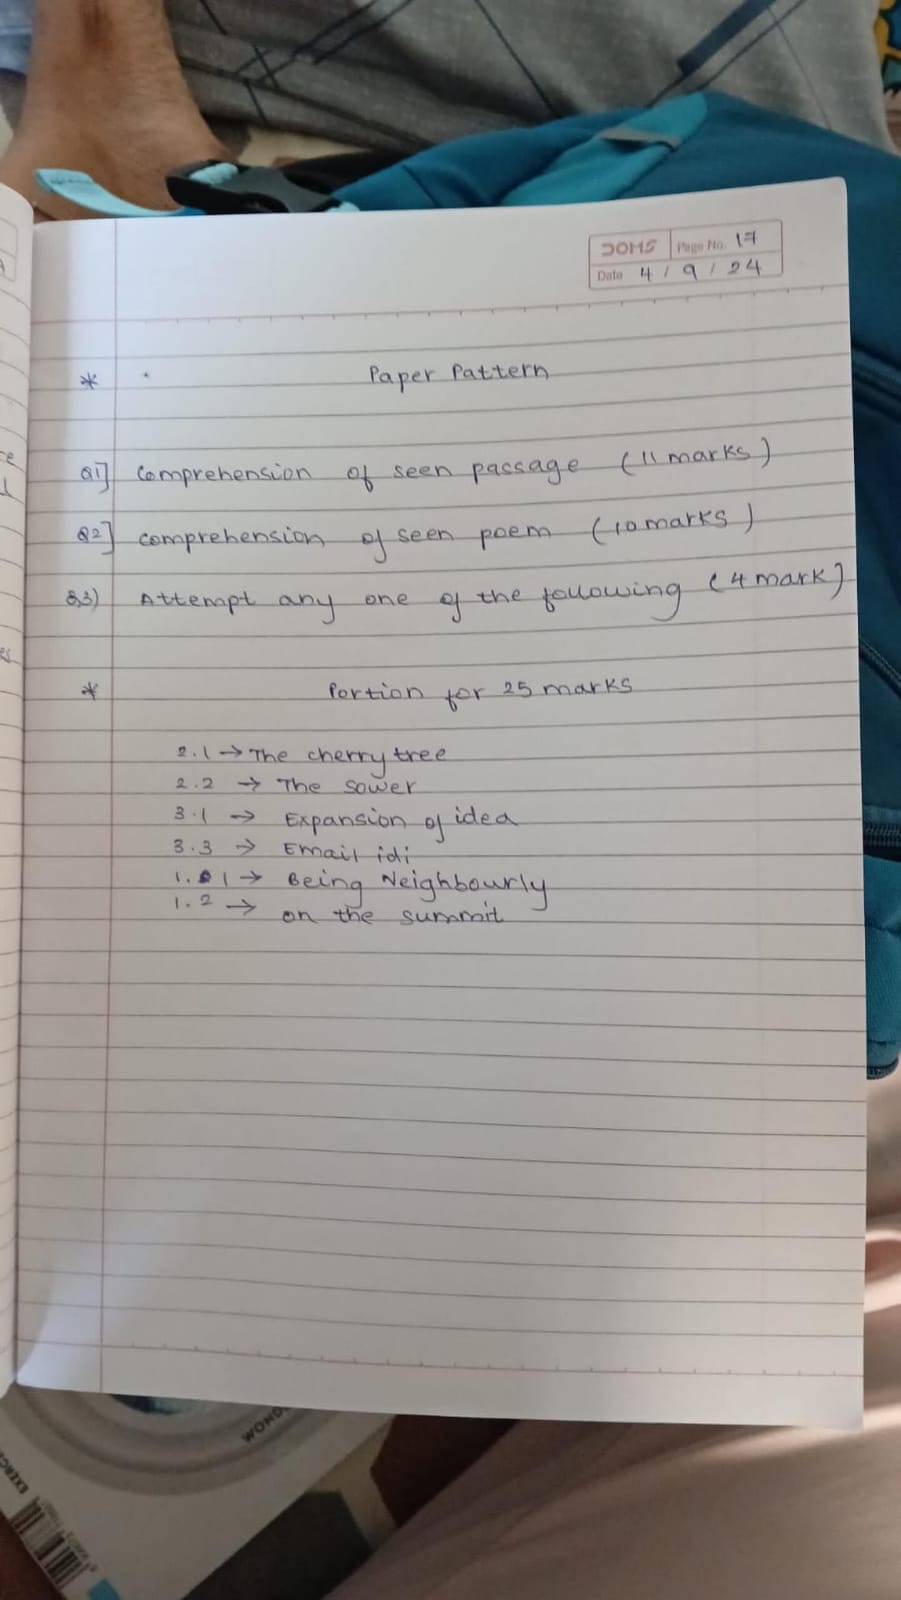 DOMS Page No. 17
Date 4 / 9 / 24
* Paper Pattern
Q1] Comprehension of seen passage (11 marks)
Q2] comprehension of seen poem (10 marks)
Q3) Attempt any one of the following (4 mark)
* Portion for 25 marks
2.1 → The cherry tree
2.2 → The Sower
3.1 → Expansion of idea
3.3 → Email idi
1.1 → Being Neighbourly
1.2 → on the summit
WOND
EXERC